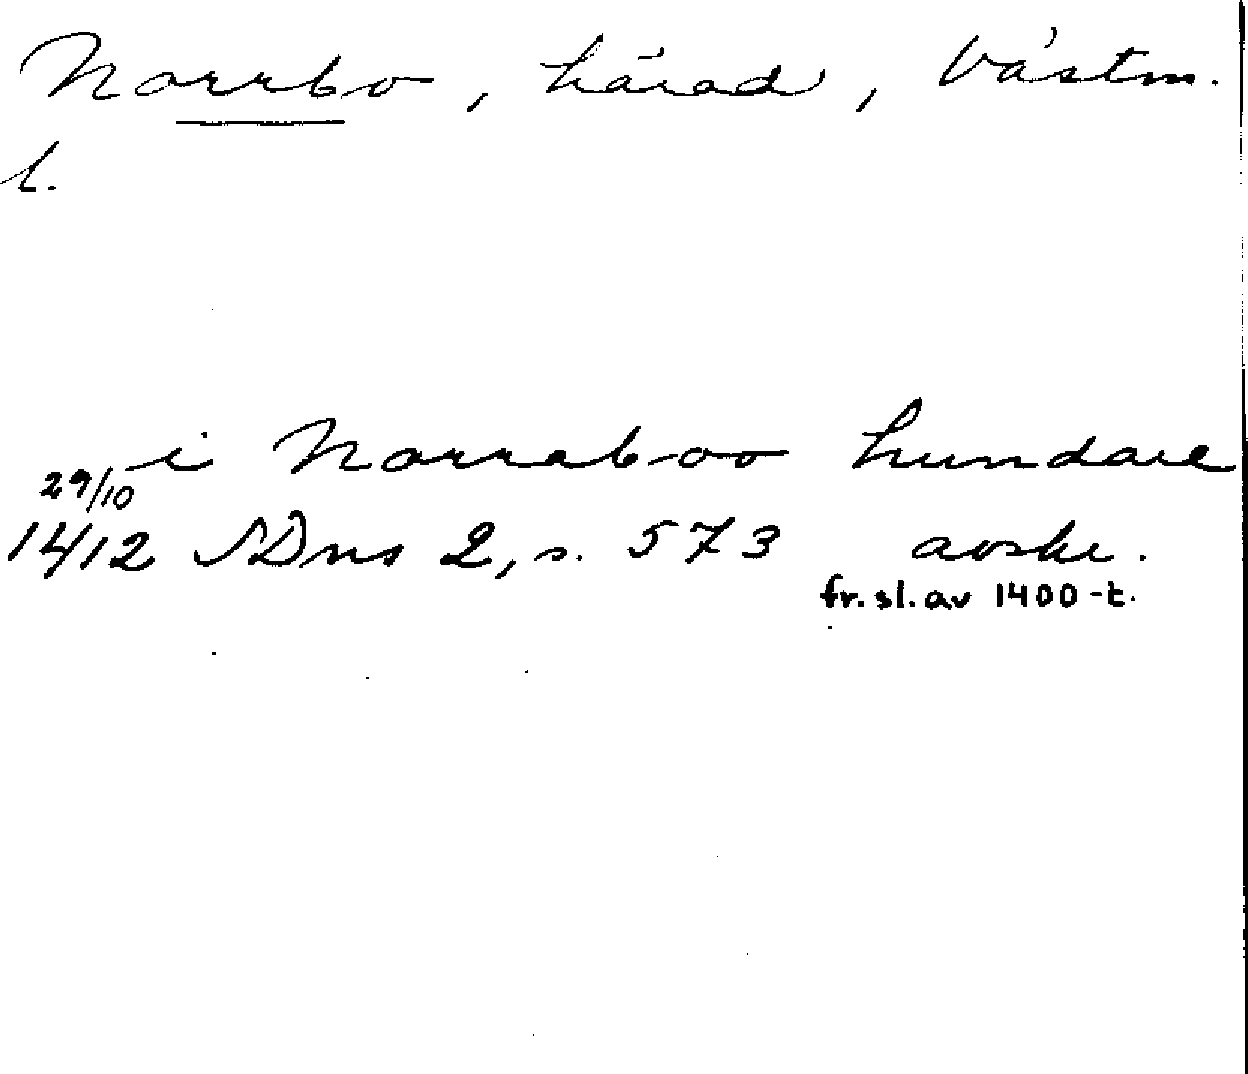 Norrbo, härad, Västm.
l.
i Norraboo hundare
29/10
1412 SDns 2, s. 573 avskr.
fr. sl. av 1400-t.